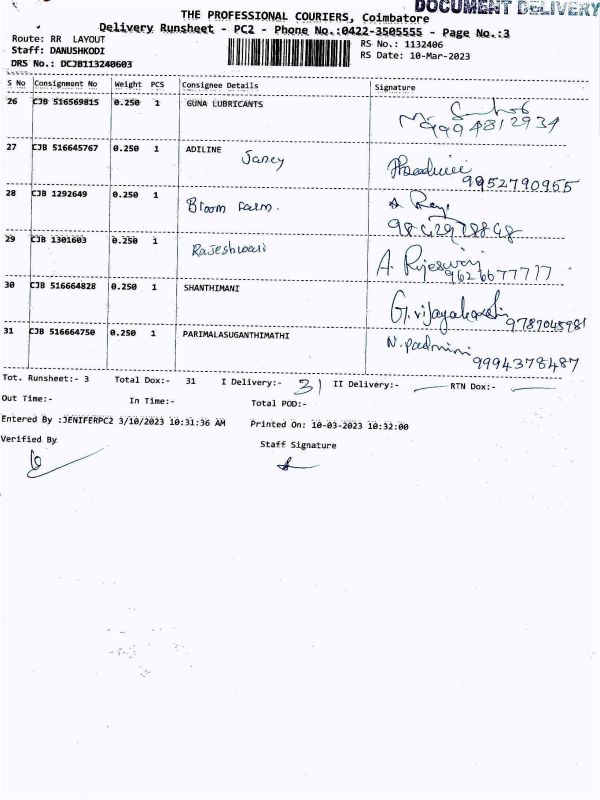 DOCUMENT DELIVERY
THE PROFESSIONAL COURIERS, Coimbatore
Delivery Runsheet - PC2 - Phone No.:0422-3505555 - Page No.:3
Route: RR LAYOUT
RS No.: 1132406
Staff: DANUSHKODI
RS Date: 10-Mar-2023
DRS No.: DCJB113240603
S No Consignment No Weight PCS Consignee Details Signature
26 CJB 516569815 0.250 1 GUNA LUBRICANTS
9994812934
27 CJB 516645767 0.250 1 ADILINE
Janey
9952790955
28 CJB 1292649 0.250 1 Bloom Farm.
29 CJB 1301603 0.250 1 Rajeshwari
A. Rajeswari
9626677717
30 CJB 516664828 0.250 1 SHANTHIMANI
G. Vijayalakshmi
9787045981
31 CJB 516664750 0.250 1 PARIMALASUGANTHIMATHI
N. Padmini
9994378487
Tot. Runsheet:- 3 Total Dox:- 31 I Delivery:- 31 II Delivery:- RTN Dox:-
Out Time:- In Time:- Total POD:-
Entered By :JENIFERPC2 3/10/2023 10:31:36 AM Printed On: 10-03-2023 10:32:00
Verified By Staff Signature